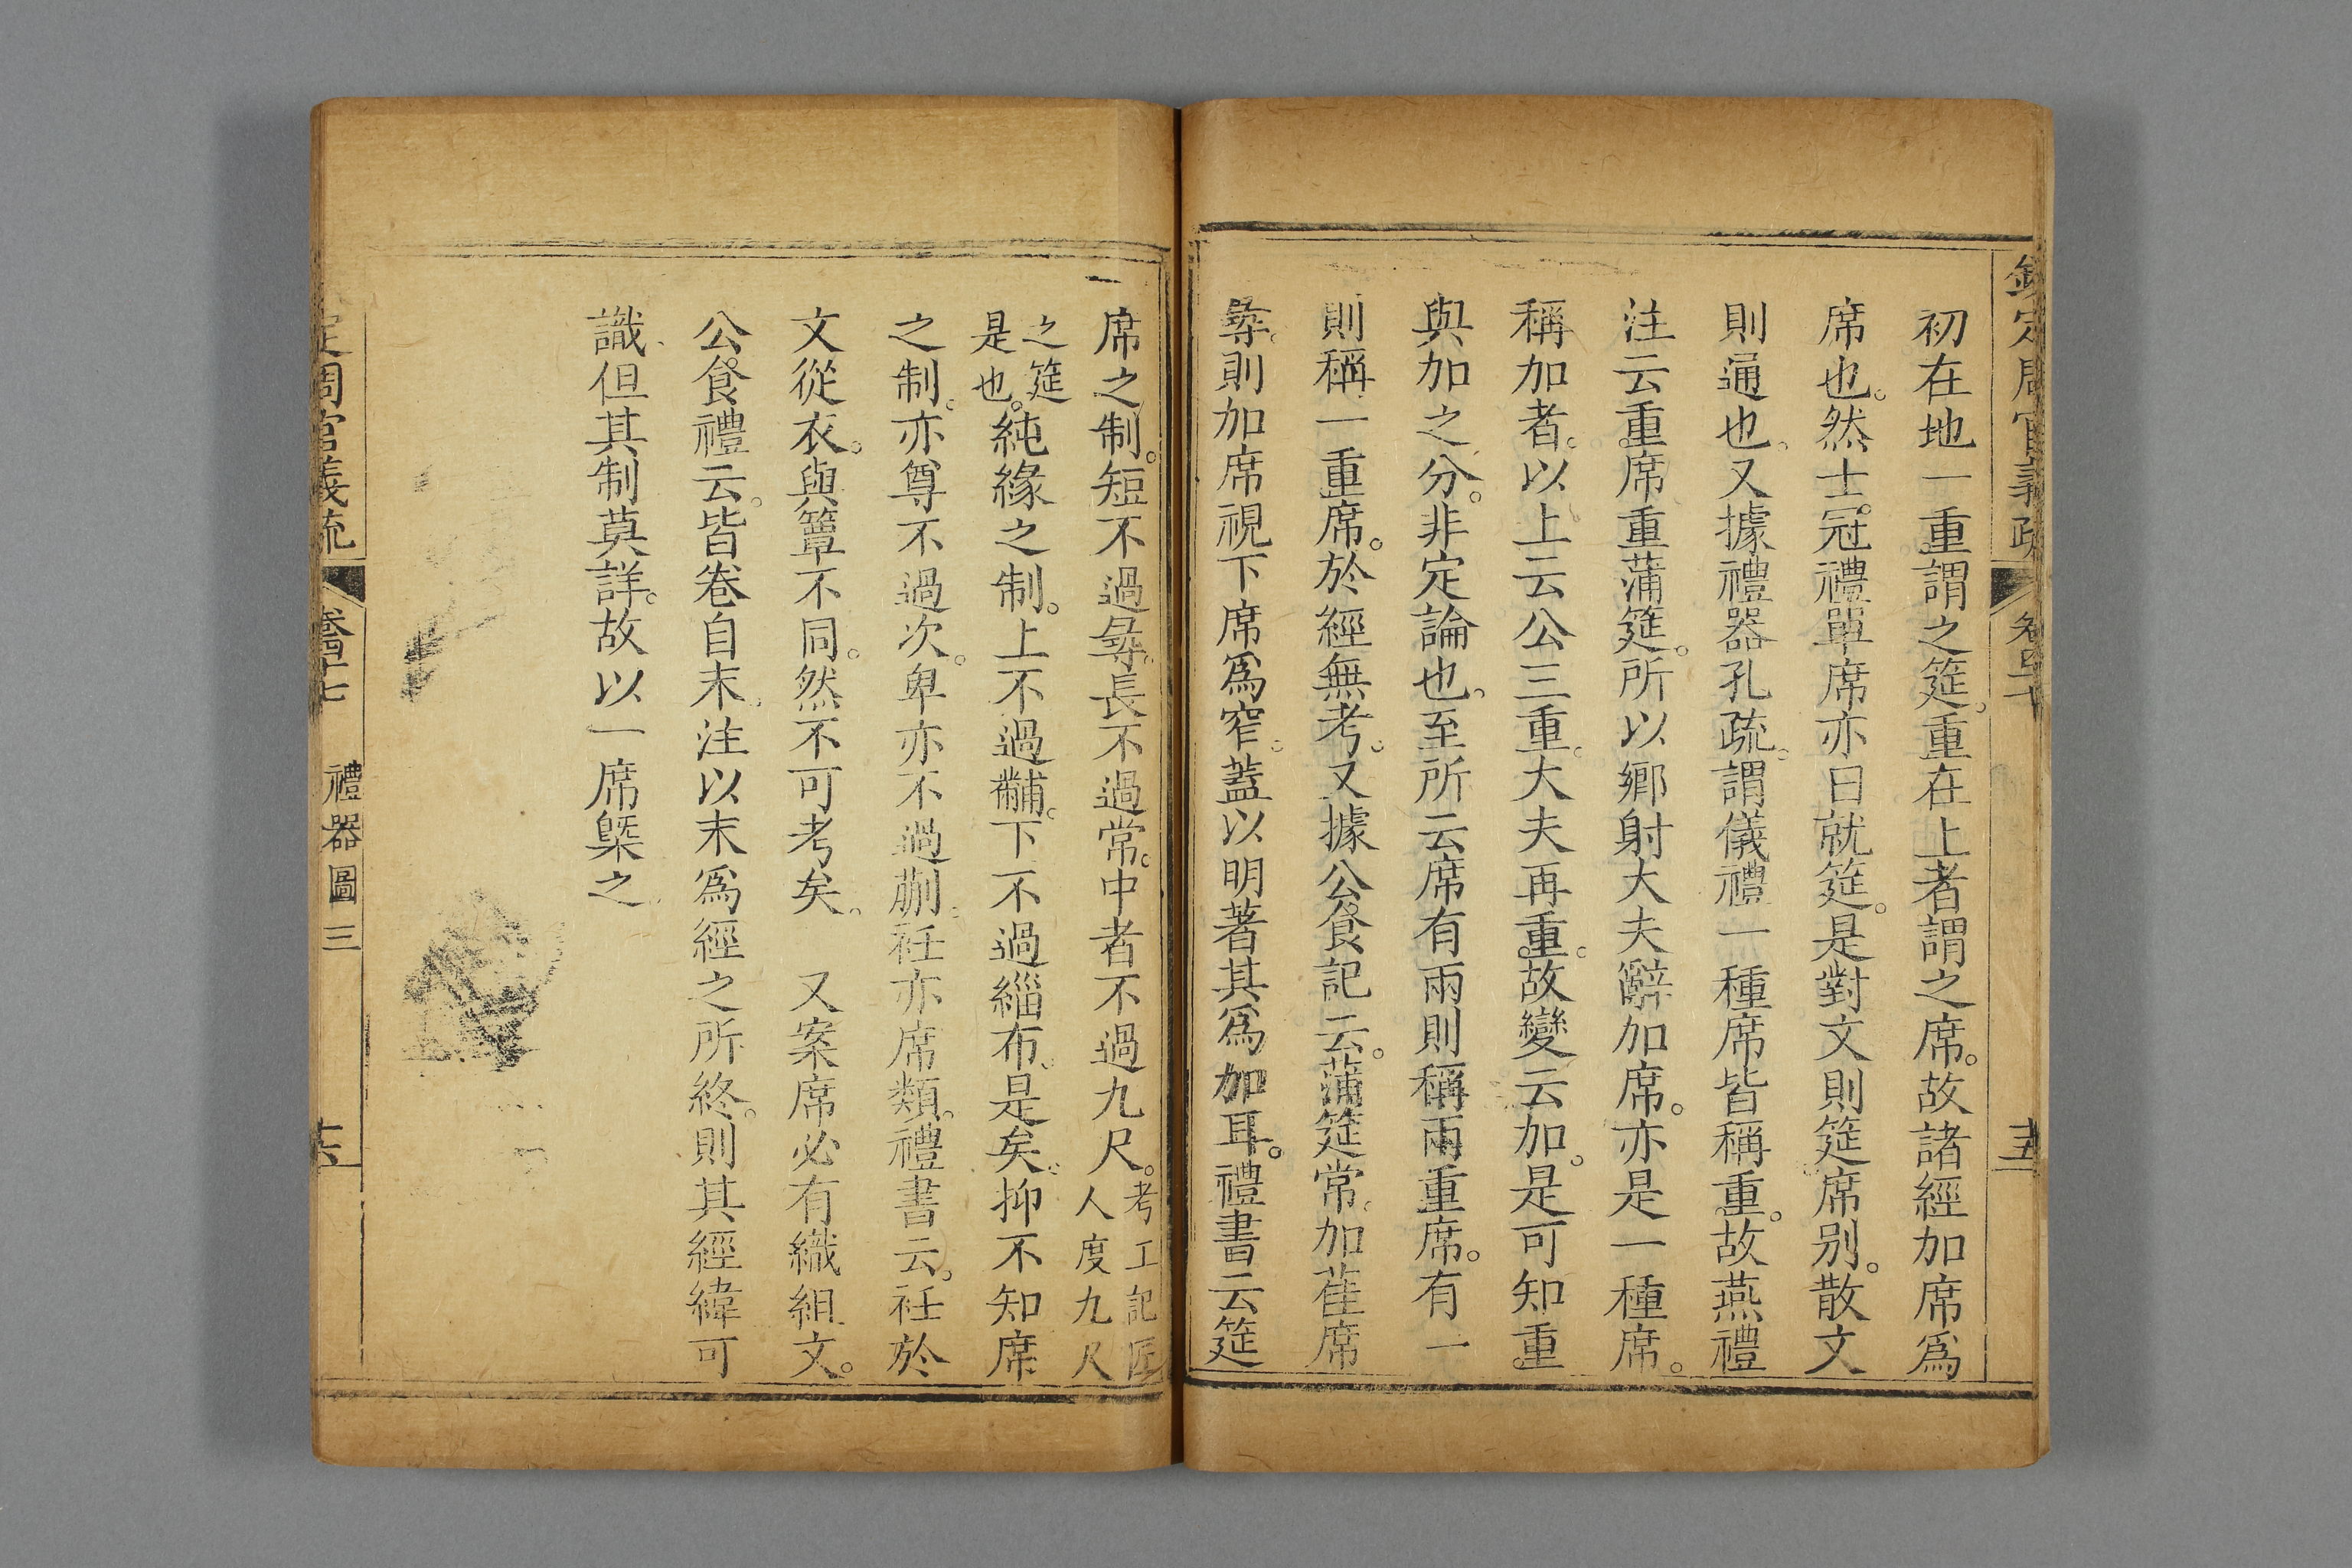 欽定周官義疏 卷四十七 十五
初在地一重謂之筵。重在上者謂之席。故諸經加席爲
席也。然士冠禮單席亦曰就筵。是對文則筵席别。散文
則通也。又據禮器孔疏。謂儀禮一種席皆稱重。故燕禮
注云重席重蒲筵。所以鄉射大夫辭加席。亦是一種席。
稱加者。以上云公三重。大夫再重。故變云加。是可知重
與加之分。非定論也。至所云席有兩則稱兩重席。有一
則稱一重席。於經無考。又據公食記云。蒲筵常。加萑席
㝷。則加席視下席爲窄。葢以明著其爲加耳。禮書云筵
席之制。短不過㝷。長不過常。中者不過九尺。考工記匠人度九尺
之筵是也。純緣之制。上不過黼。下不過緇布。是矣。抑不知席
之制。亦尊不過次。卑亦不過蒯。衽亦席類。禮書云。衽於
文從衣。與簟不同。然不可考矣。 又案席必有織組文。
公食禮云。皆卷自末。注以末爲經之所終。則其經緯可
識。但其制莫詳。故以一席㮣之
定周官義疏 卷四十七 禮器圖三 十六